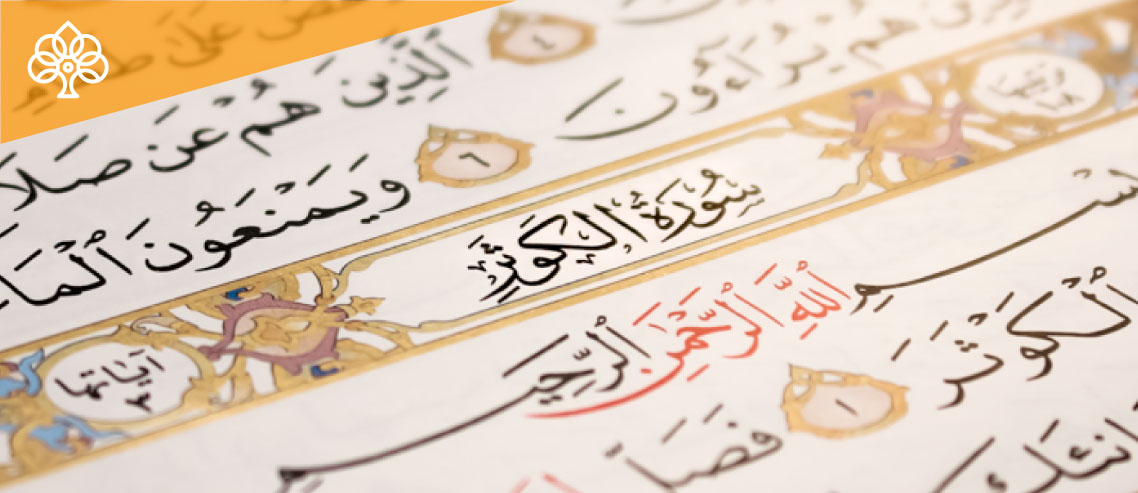 عَلَىٰ
٤ ٱلَّذِينَ هُمْ عَن صَلَا
ذِينَ هُمْ يُرَآءُونَ ٦ وَيَمْنَعُونَ ٱلْمَا
سُورَةُ ٱلْكَوْثَرِ آيَاتُهَا ٣
سْمِ ٱللَّهِ ٱلرَّحْمَٰنِ ٱلرَّحِيمِ
ٱلْكَوْثَرَ ١ فَصَلِّ
انِئَكَ